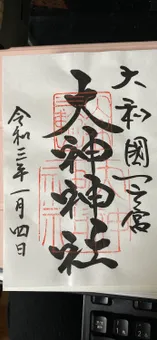 大和國一之宮
大神神社
令和三年一月四日